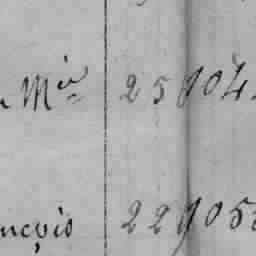 Mie 25904
nçois 22905